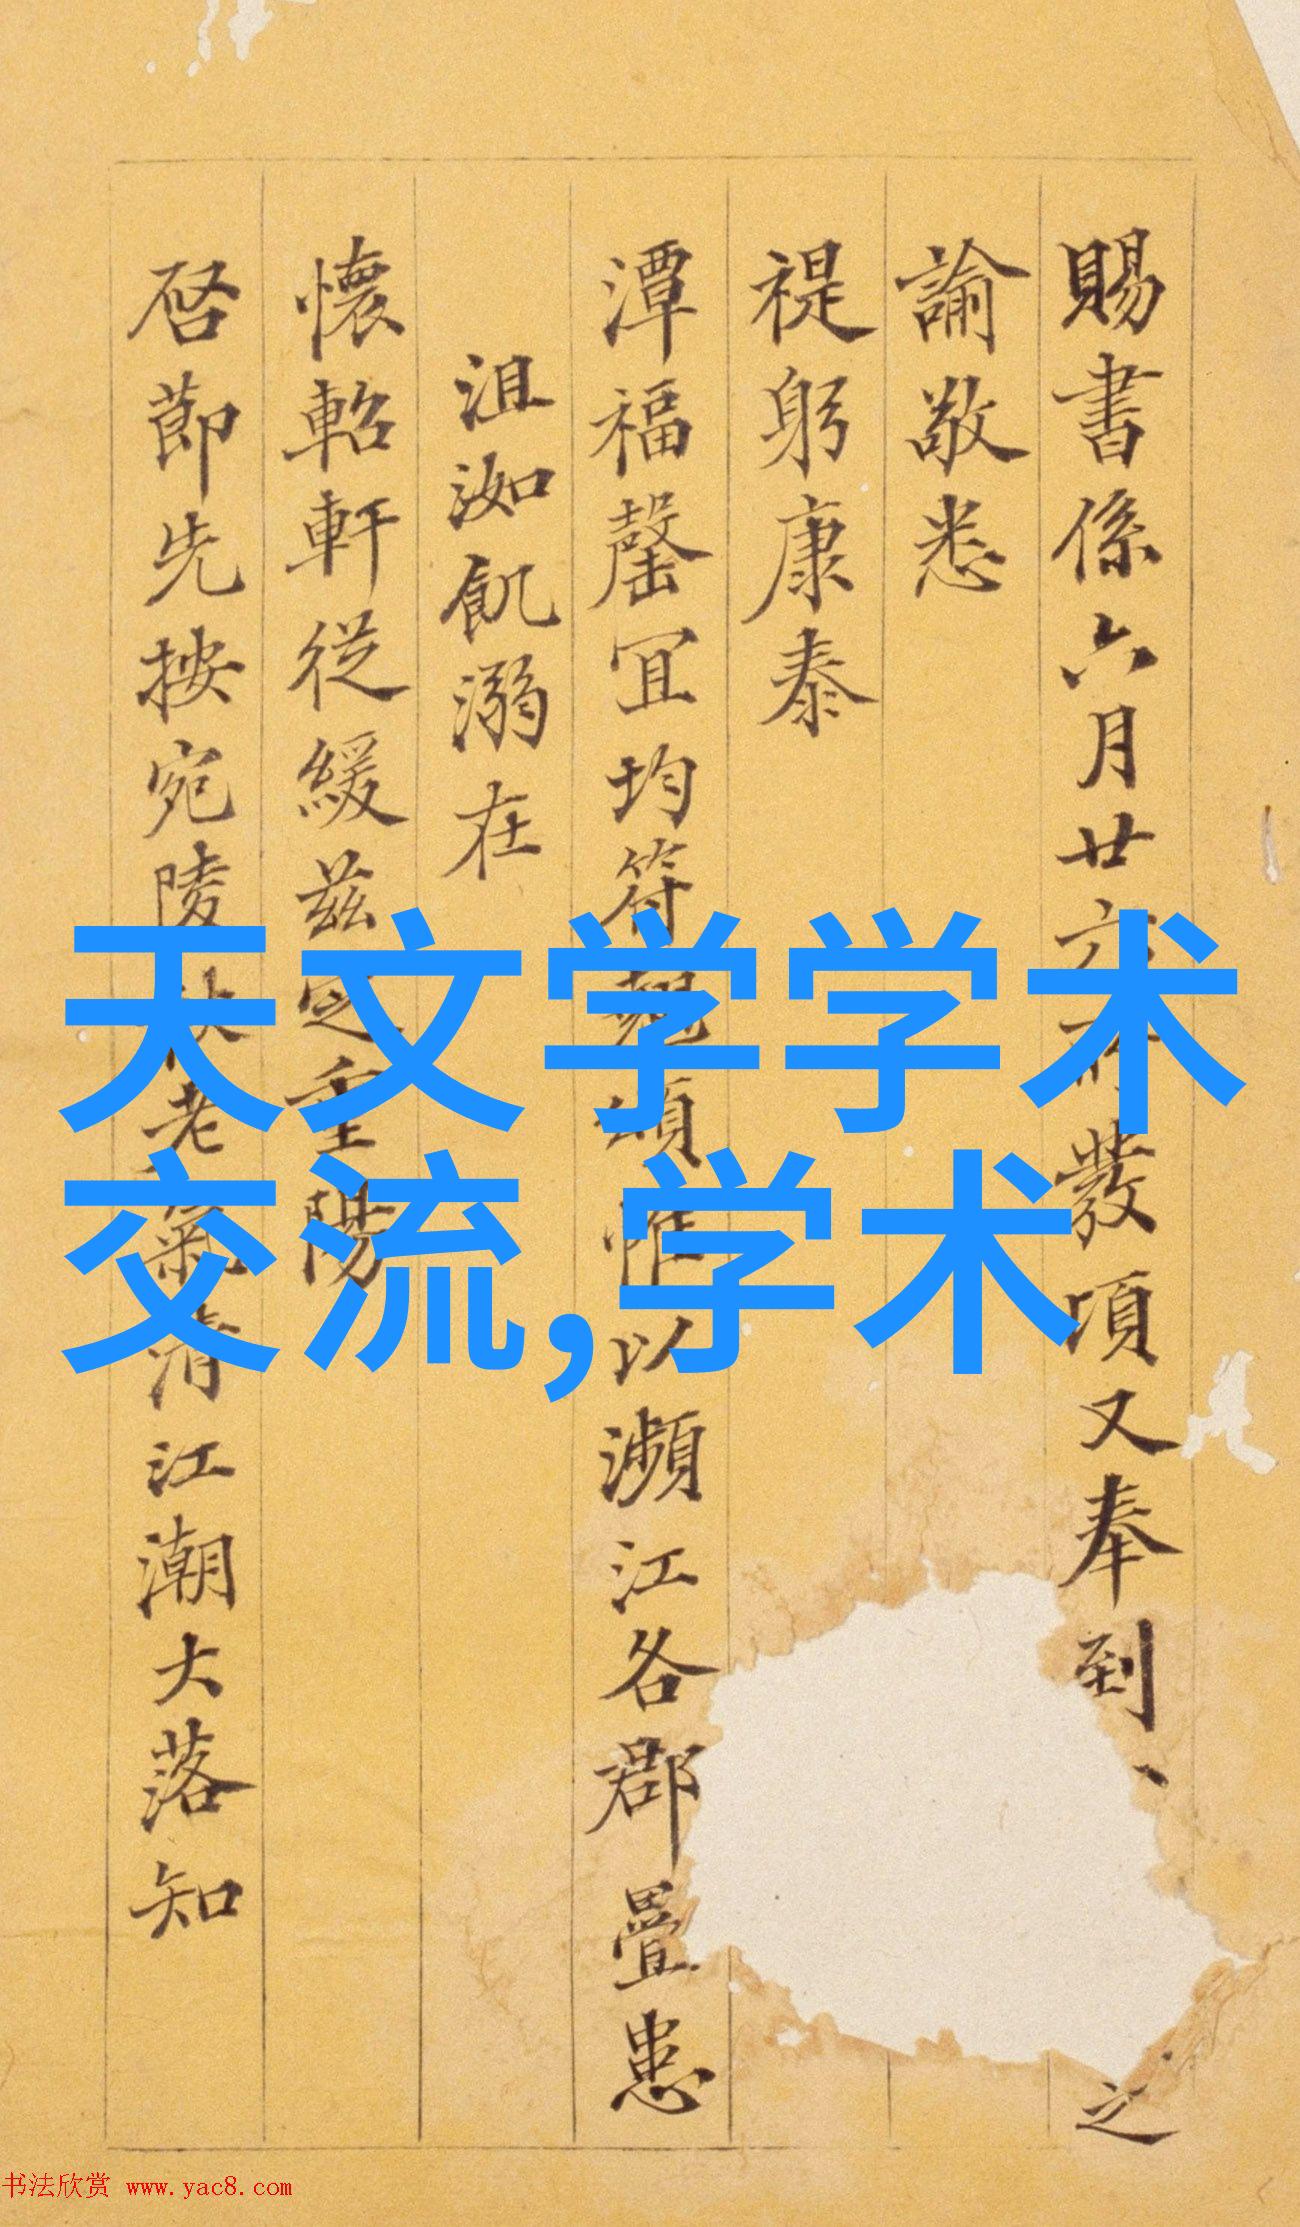 賜書係六月廿六發項又奉到
之
諭敬悉
禔躬康泰
潭福罄宜均符頌惟以瀕江各郡疊患
沮洳飢溺在
懷軺軒従緩兹定重陽
啓節先按宛陵秋老氣清江潮大落知
天文学学术
交流,学术
书法欣赏 www.yac8.com